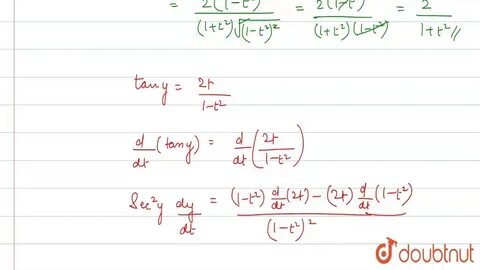 = 2(1-t²) / (1+t²)√(1-t²)² = 2(1-t²) / (1+t²)(1-t²) = 2 / 1+t² //
tan y = 2t / 1-t²
d/dt (tan y) = d/dt (2t / 1-t²)
Sec²y dy/dt = (1-t²) d/dt (2t) - (2t) d/dt (1-t²) / (1-t²)²
doubtnut